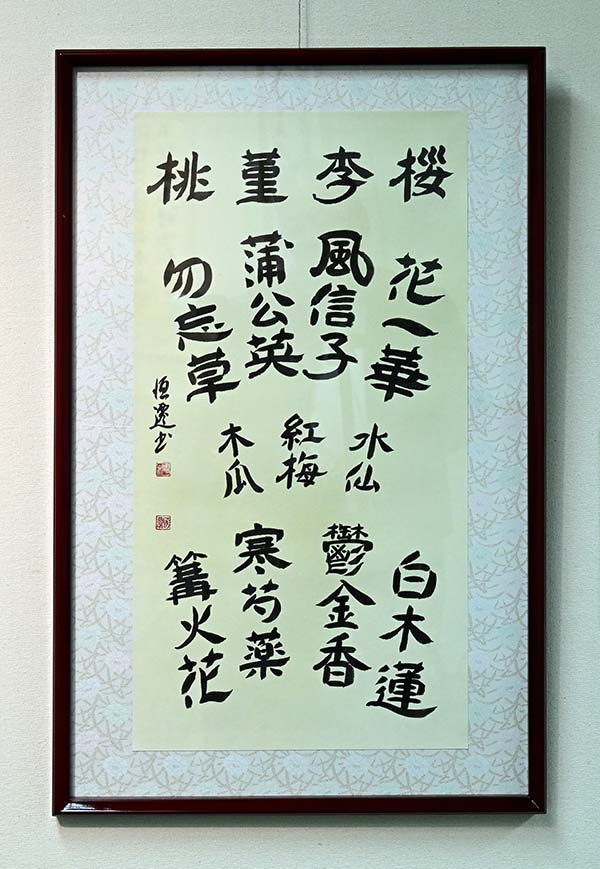 桜
李
菫
桃
花一華
風信子
蒲公英
勿忘草
水仙
紅梅
木瓜
白木蓮
鬱金香
寒芍薬
篝火花